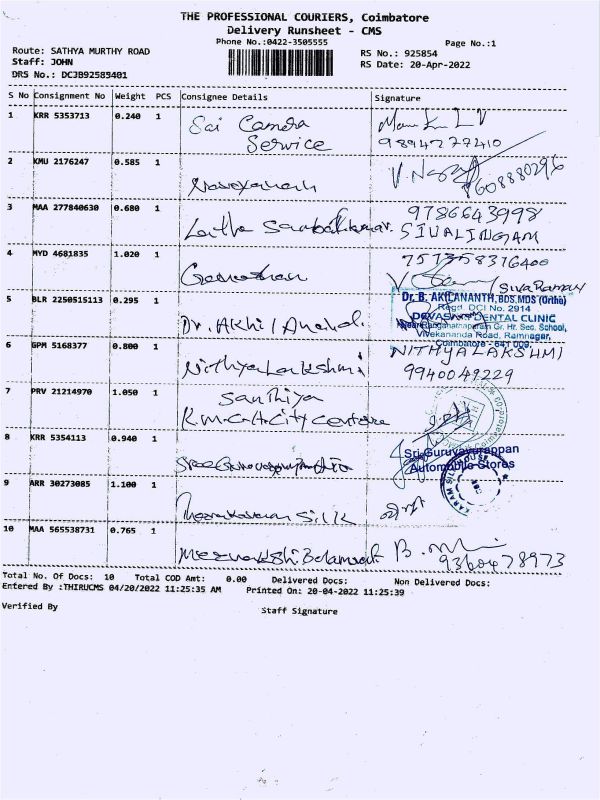 THE PROFESSIONAL COURIERS, Coimbatore
Delivery Runsheet - CMS
Phone No.:0422-3505555
Page No.:1
Route: SATHYA MURTHY ROAD
RS No.: 925854
Staff: JOHN
RS Date: 20-Apr-2022
DRS No.: DCJB92585401
S No Consignment No Weight PCS Consignee Details Signature
1 KRR 5353713 0.240 1 Sai Camera
Service
9894277410
2 KMU 2176247 0.585 1
9608880296
3 MAA 277840630 0.680 1 Latha
9786643998
SIVALINGAM
4 MYD 4681835 1.020 1
7513583 16400
(Siva Raman
5 BLR 2250515113 0.295 1 Dr. Akhil Anand.
Dr. B. AKILANANTH, BDS,MDS (Ortho)
Regd. DCI No. 2914
DEVASH DENTAL CLINIC
Near Ranganathapuram Gr. Hr. Sec. School,
Vivekananda Road, Ramnagar,
Coimbatore - 641 009.
6 GPM 5168377 0.800 1 Nithyalakshmi
NITHYALAKSHMI
9940049229
7 PRV 21214970 1.050 1 Santhiya
K.m.c.H. City Centre
8 KRR 5354113 0.940 1
Sri Guruvayurappan
Automobile Stores
9 ARR 30273085 1.100 1 Silk
10 MAA 565538731 0.765 1 Meenakshi
9360478973
Total No. Of Docs: 10 Total COD Amt: 0.00 Delivered Docs: Non Delivered Docs:
Entered By :THIRUCMS 04/20/2022 11:25:35 AM Printed On: 20-04-2022 11:25:39
Verified By
Staff Signature